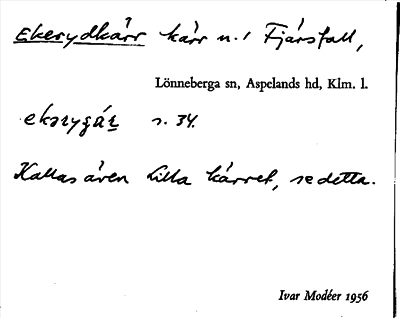 Ekerydkärr kärr n. i Fjärsfall,
Lönneberga sn, Aspelands hd, Klm. l.
ekərygäṟ s. 34.
Kallas även Lilla kärret, se detta.
Ivar Modéer 1956